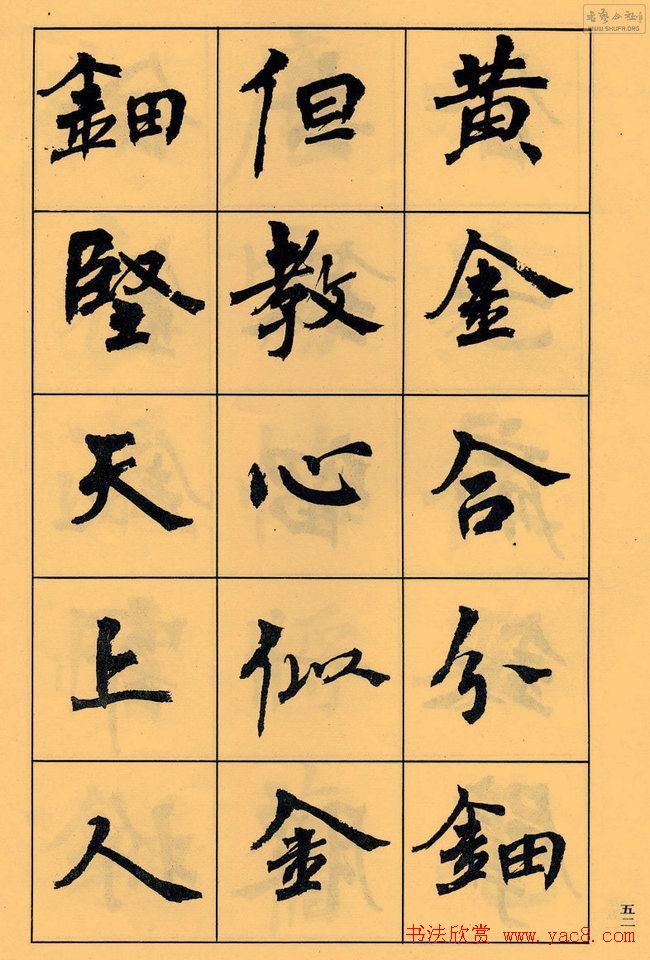 黄金合分鈿
但教心似金
鈿堅天上人
五二
书法欣赏 www.yac8.com
WWW.SHUFA.ORG